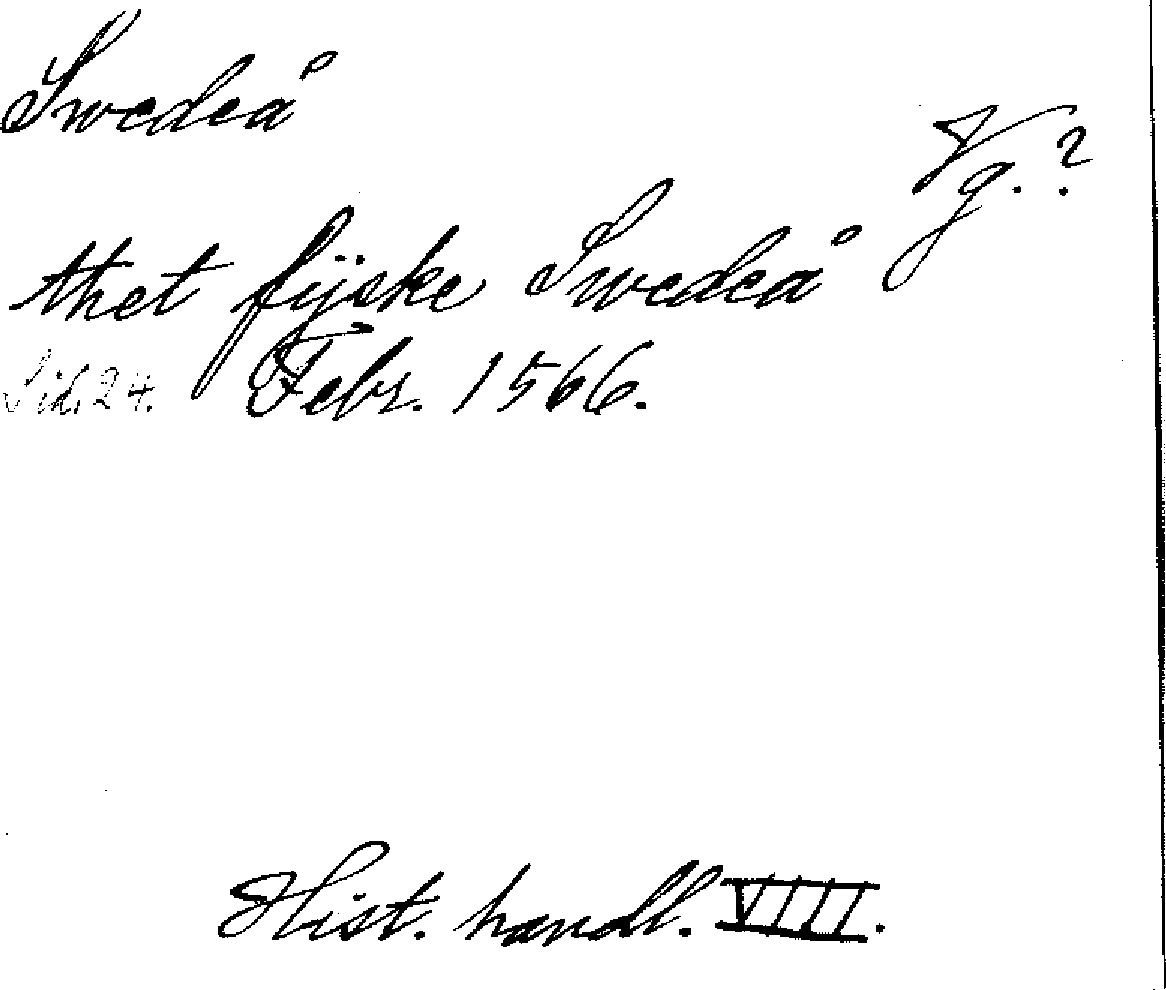 Swedeå
Vg. ?
thet fijske Swedeå
Sid. 24. Febr. 1566.
Hist. handl. VIII.